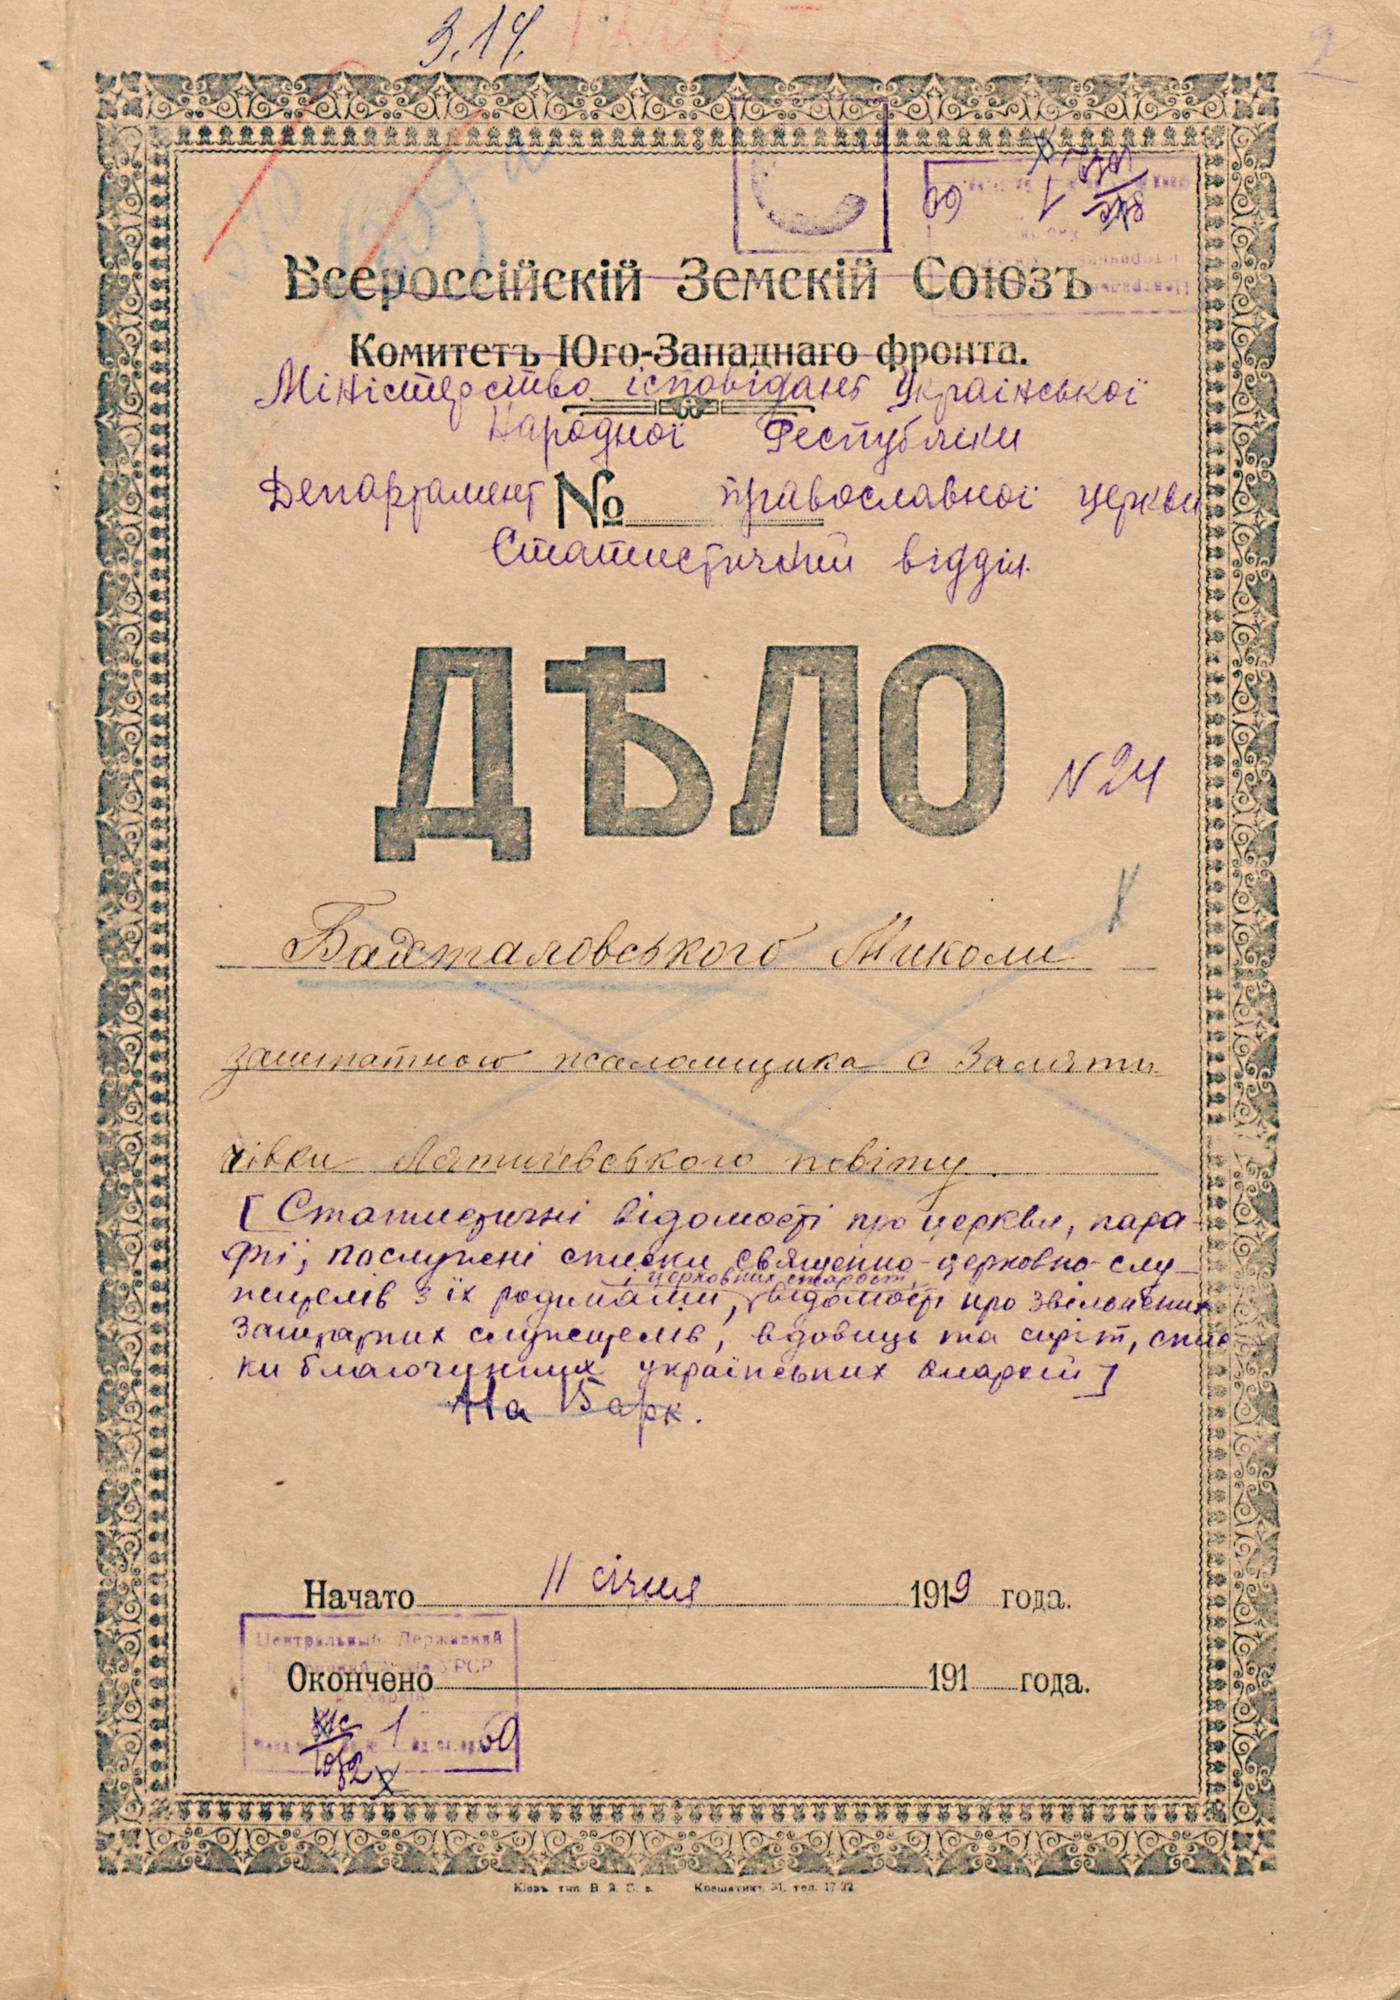 3.14.
Всероссійскій Земскій Союзъ
Комитетъ Юго-Западнаго фронта.
Міністерство ісповідань Української
Народної Республіки
Департамент № православної церкви
Статистичний відділ
ДѢЛО
N 24
Миколи
заштатного псаломщика с Залєти
чівки Лятичівського повіту.
[Статистичні відомості про церкви, пара-
фії, послужні списки священно-церковно-слу-
і церковних старост,
жителів з їх родинами, відомості про звільнених
заштатних служителів, вдовиць та сиріт, спис
ки благочинних українських єпархій]
На Барк.
Начато 11 січня 1919 года.
Центральный Державний
Окончено 191 года.
УРСР
Харків
1 60
1072
Кіевъ тип. В. З. С. Крещатикъ 31, тел. 17-22